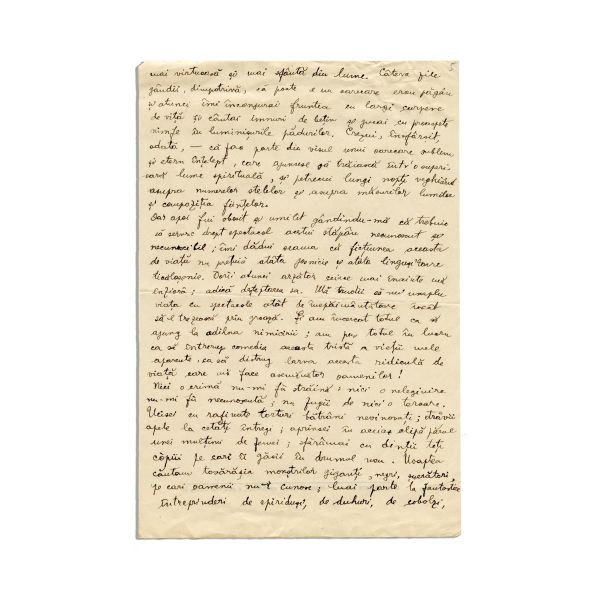 5
mai virtuoasă și mai sfântă din lume. Câteva zile
gândii, dimpotrivă, că poate e un oarecare erou păgân
și atunci îmi înconjurai fruntea cu largi cunune
de viță și cântai imnuri de beție și jucai cu proaspete
nimfe în luminișurile pădurilor. Crezui, însfârșit,
odată, — că fac parte din visul unui oarecare sublim
și etern înțelept, care ajunsese să trăiască într'o superi-
oară lume spirituală, și petrecui lungi nopți veghiând
asupra numerelor stelelor și asupra măsurilor lumilor
și compoziția ființelor.
Dar apoi fui obosit și umilit gândindu-mă că trebuie
să servesc drept spectacol acestui stăpân necunoscut și
necunoscibil; îmi dădui seama că ficțiunea aceasta
de viață nu prețuia atâta josnicie și atâta lingușitoare
ticăloșenie. Dorii atunci arzător ceeace mai înainte mă
înfioră; adică deșteptarea sa. Mă trudii să-mi umplu
viața cu spectacole atât de înspăimântătoare încât
să-l trezească prin groază. Și am încercat totul ca să
ajung la odihna nimicirii; am pus totul în lucru
ca să întrerup comedia aceasta tristă a vieții mele
aparente, ca să distrug larva aceasta ridicolă de
viață care mă face asemuitor oamenilor!
Nici o crimă nu-mi fu străină; nici o nelegiuire
nu-mi fu necunoscută; nu fugii de nici o teroare.
Ucisei cu rafinate torturi bătrâni nevinovați; otrăvii
apele la cetăți întregi; aprinsei în aceiaș clipă părul
unei mulțimi de femei; sfărâmai cu dinții toți
copiii pe cari îi găsii în drumul meu. Noaptea
căutam tovărășia monștrilor giganți, negri, șuerători,
pe cari oamenii nu-i cunosc; luai parte la fantastice
întreprinderi de spiriduși, de duhuri, de cobolzi,